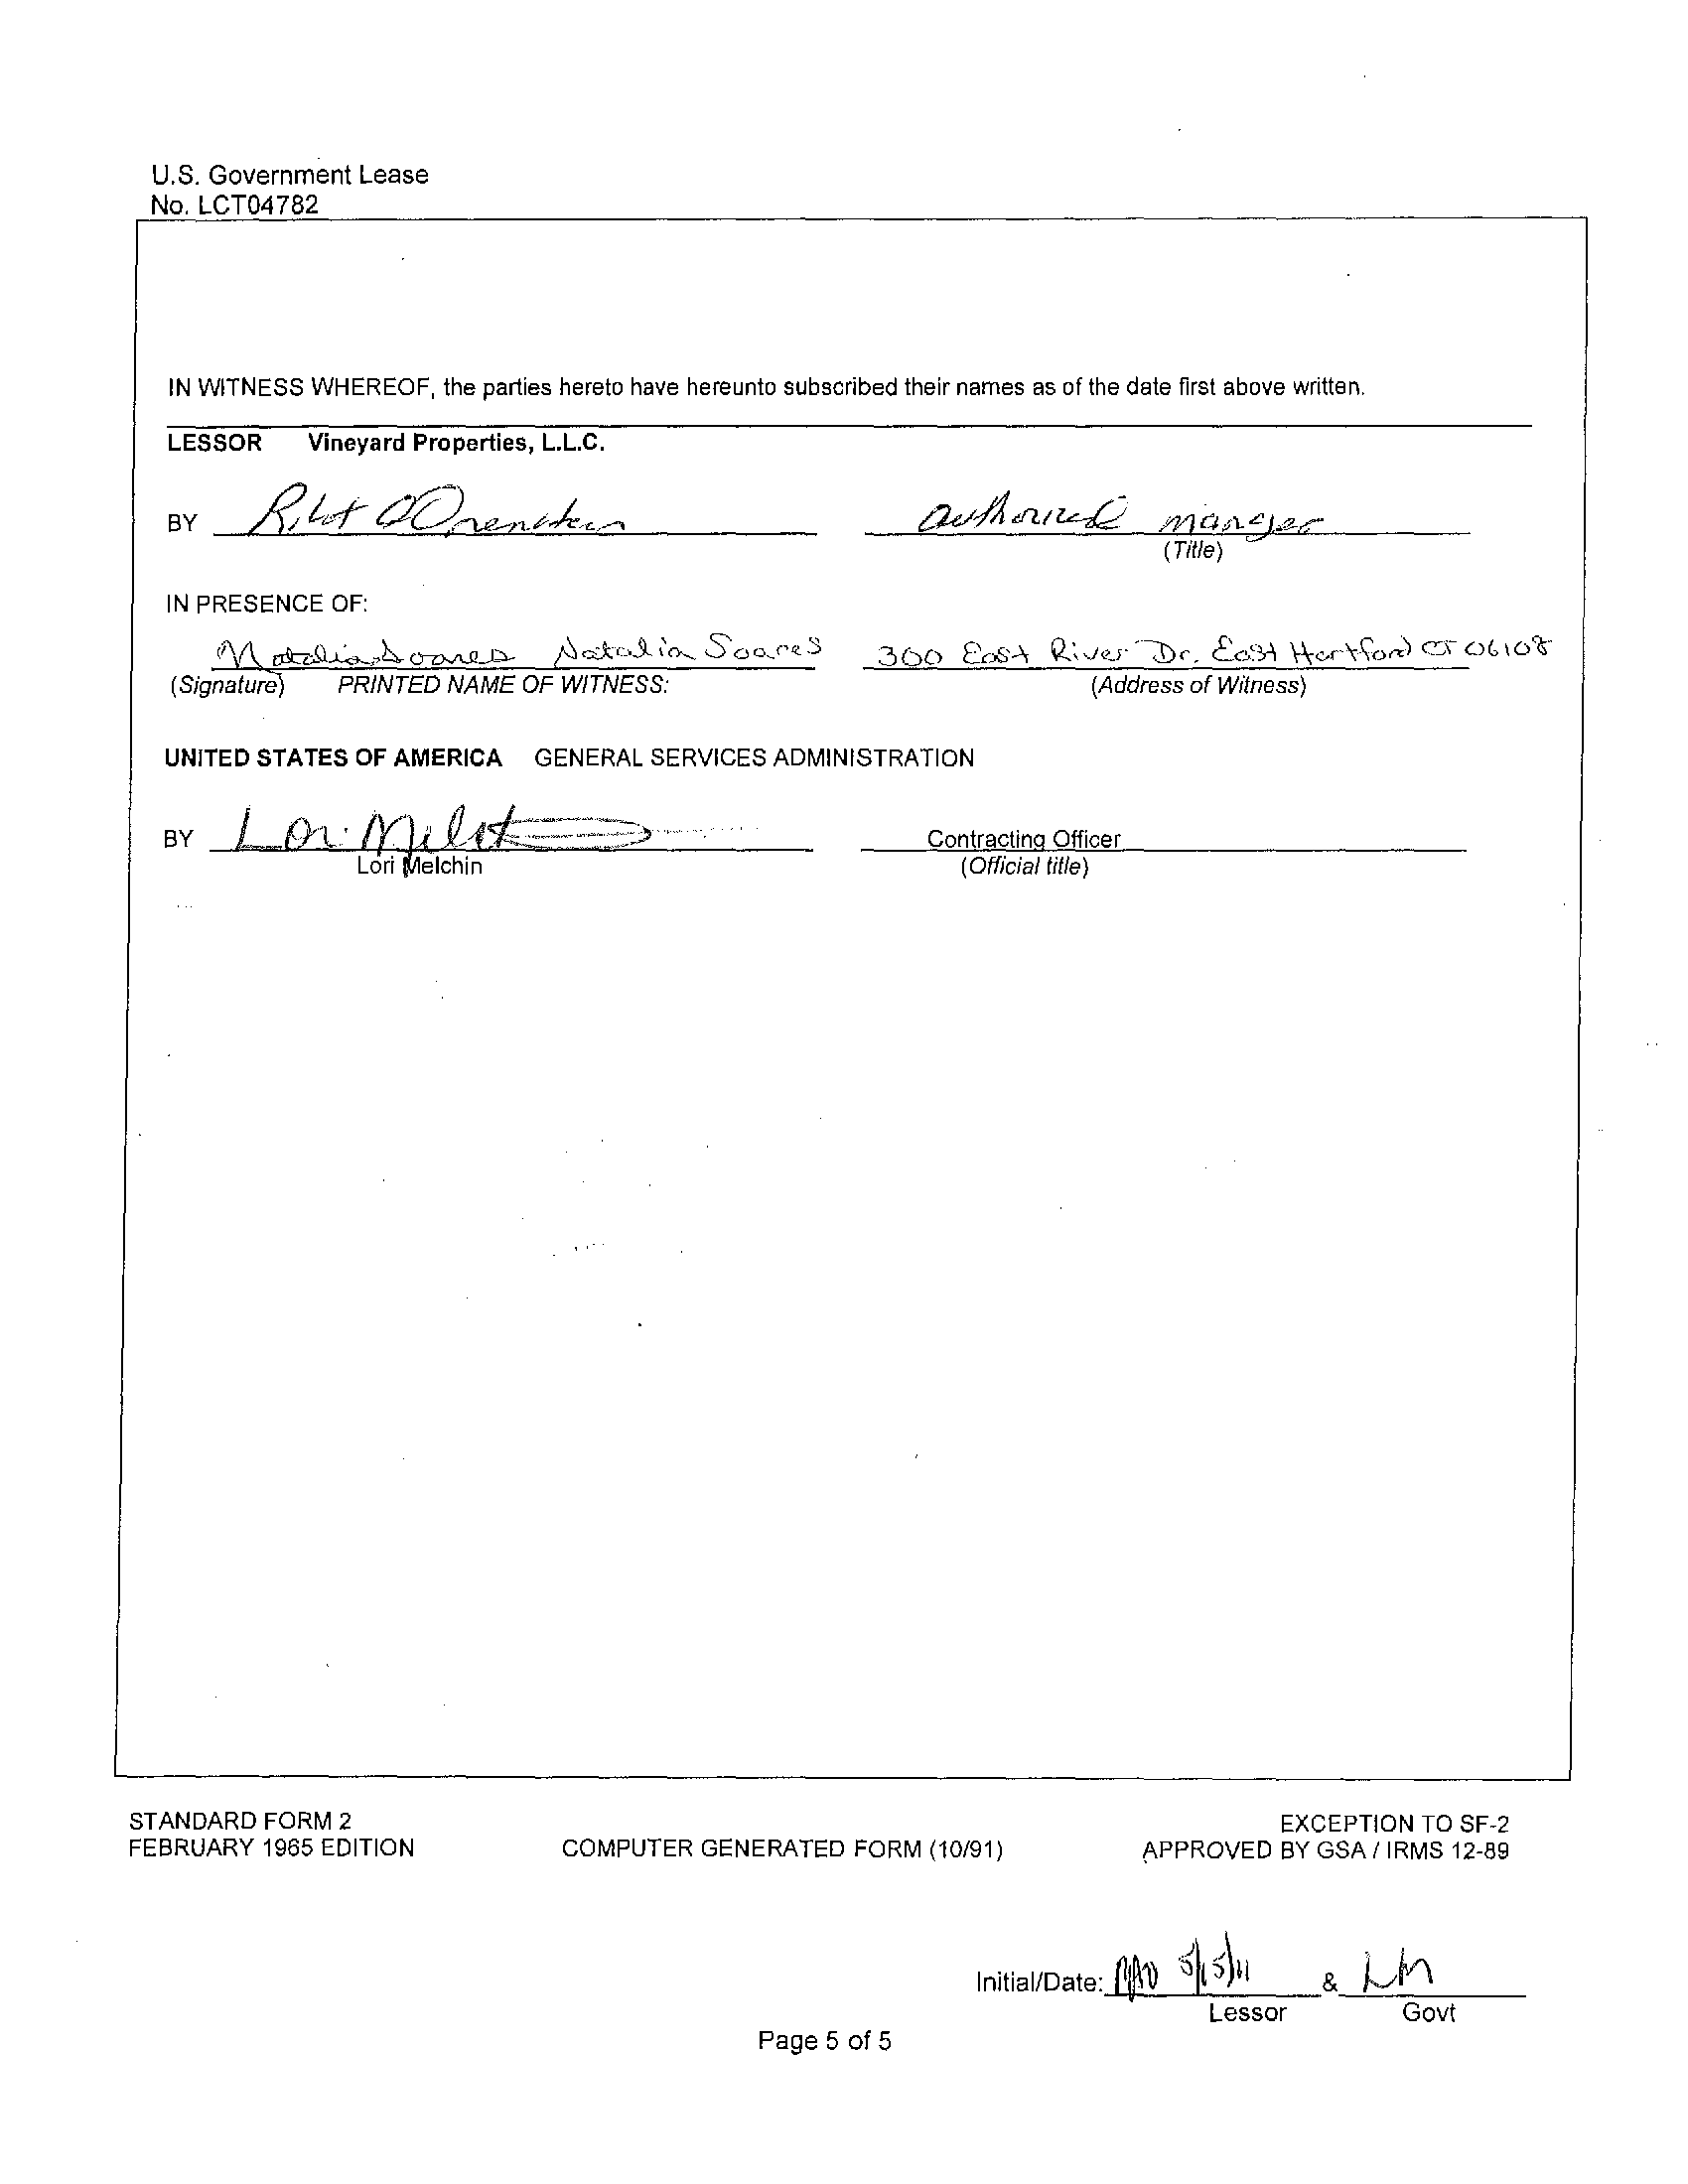 U.S. Government Lease
No. LCT04782
IN WITNESS WHEREOF, the parties hereto have hereunto subscribed their names as of the date first above written.
LESSOR Vineyard Properties, L.L.C.
BY authorized manager
(Title)
IN PRESENCE OF:
Natalia Soares Natalia Soares 300 East River Dr. East Hartford CT 06108
(Signature) PRINTED NAME OF WITNESS: (Address of Witness)
UNITED STATES OF AMERICA GENERAL SERVICES ADMINISTRATION
BY Lori Contracting Officer
Lori Melchin (Official title)
STANDARD FORM 2 EXCEPTION TO SF-2
FEBRUARY 1965 EDITION COMPUTER GENERATED FORM (10/91) APPROVED BY GSA / IRMS 12-89
Initial/Date: 5/15/11 & LM
Lessor Govt
Page 5 of 5